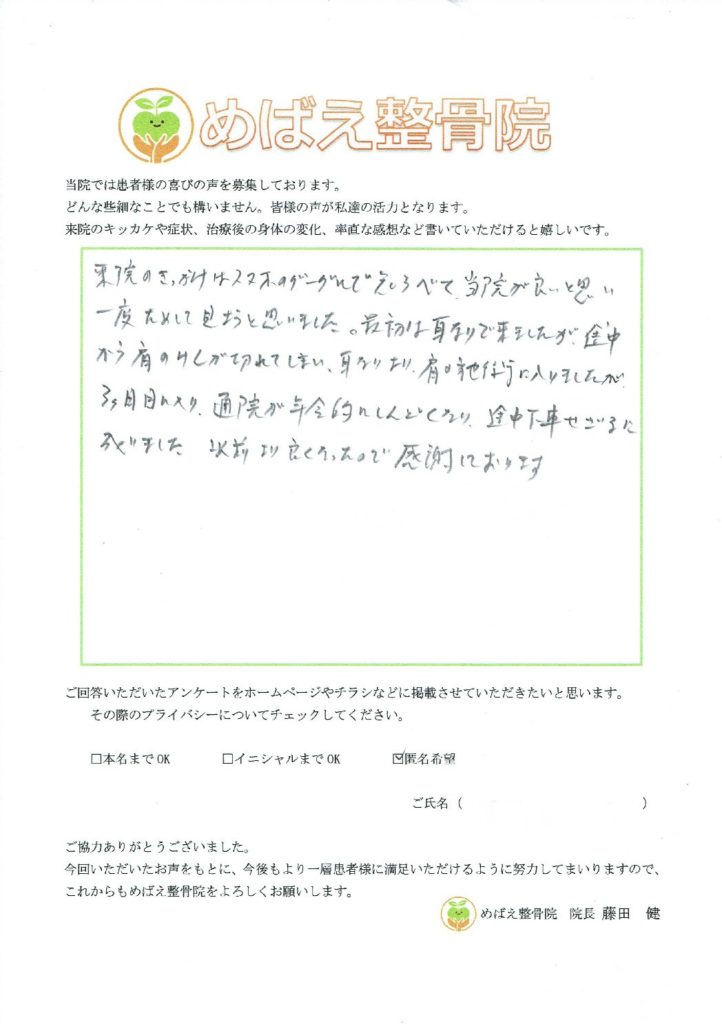 めばえ整骨院
当院では患者様の喜びの声を募集しております。
どんな些細なことでも構いません。皆様の声が私達の活力となります。
来院のキッカケや症状、治療後の身体の変化、率直な感想など書いていただけると嬉しいです。
来院のきっかけはスマホのグーグルで しらべて、当院が良いと思い
一度ためして見ようと思いました。最初は耳なりで来ましたが、途中
から肩のけんが切れてしまい、耳なりより、肩の に入りましたが
3ヶ月目に入り、通院が年令的にしんどくなり、途中下車せざるに
なりました 以前より良くなったので感謝しております
ご回答いただいたアンケートをホームページやチラシなどに掲載させていただきたいと思います。
その際のプライバシーについてチェックしてください。
□本名までOK □イニシャルまでOK ☑匿名希望
ご氏名（ ）
ご協力ありがとうございました。
今回いただいたお声をもとに、今後もより一層患者様に満足いただけるように努力してまいりますので、
これからもめばえ整骨院をよろしくお願いします。
めばえ整骨院 院長 藤田 健